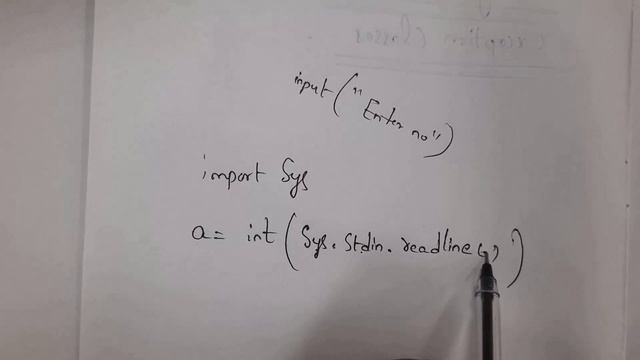 input("Enter no")
import Sys
a= int(Sys.Stdin.readline())